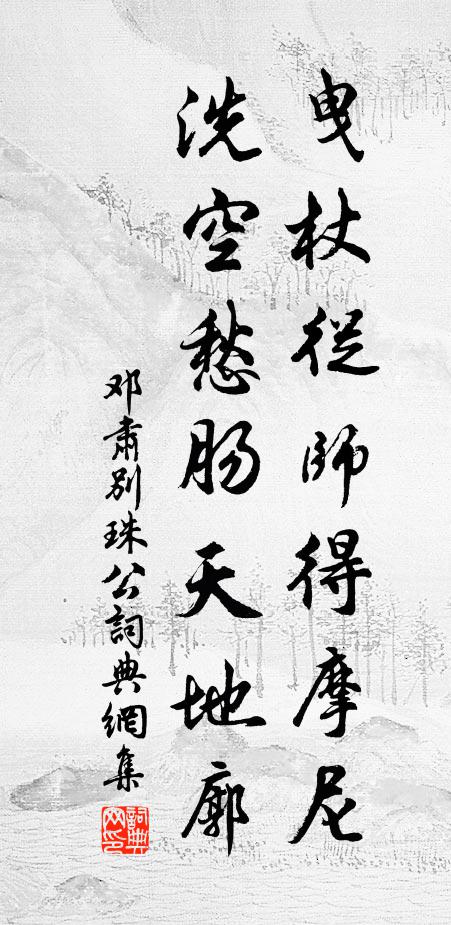 曳杖從師得摩尼
洗空愁腸天地廓
邓肅别珠公詞典網集
詞典網印